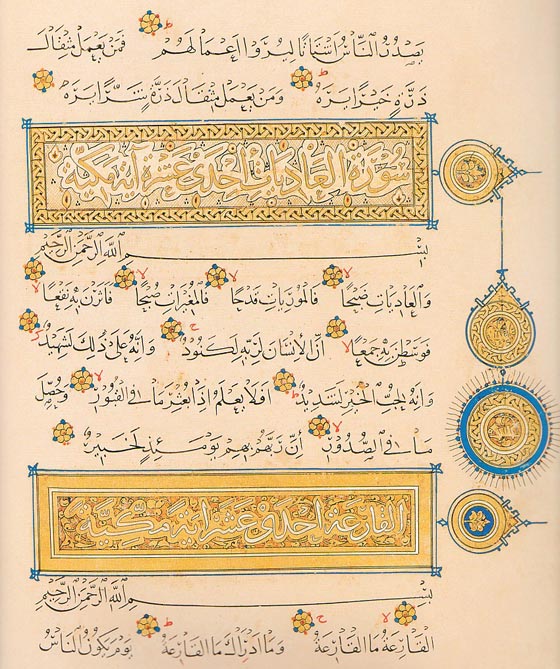 يَصْدُرُ النَّاسُ أَشْتَاتًا لِيُرَوْا أَعْمَالَهُمْ فَمَنْ يَعْمَلْ مِثْقَالَ
ذَرَّةٍ خَيْرًا يَرَهُ وَمَنْ يَعْمَلْ مِثْقَالَ ذَرَّةٍ شَرًّا يَرَهُ
سورة العاديات احدى عشرة آية مكية
بِسْمِ اللَّهِ الرَّحْمَنِ الرَّحِيمِ
وَالْعَادِيَاتِ ضَبْحًا فَالْمُورِيَاتِ قَدْحًا فَالْمُغِيرَاتِ صُبْحًا فَأَثَرْنَ بِهِ نَقْعًا
فَوَسَطْنَ بِهِ جَمْعًا إِنَّ الْإِنْسَانَ لِرَبِّهِ لَكَنُودٌ وَإِنَّهُ عَلَى ذَلِكَ لَشَهِيدٌ
وَإِنَّهُ لِحُبِّ الْخَيْرِ لَشَدِيدٌ أَفَلَا يَعْلَمُ إِذَا بُعْثِرَ مَا فِي الْقُبُورِ وَحُصِّلَ
مَا فِي الصُّدُورِ إِنَّ رَبَّهُمْ بِهِمْ يَوْمَئِذٍ لَخَبِيرٌ
القارعة احدى عشر آية مكية
بِسْمِ اللَّهِ الرَّحْمَنِ الرَّحِيمِ
الْقَارِعَةُ مَا الْقَارِعَةُ وَمَا أَدْرَاكَ مَا الْقَارِعَةُ يَوْمَ يَكُونُ النَّاسُ